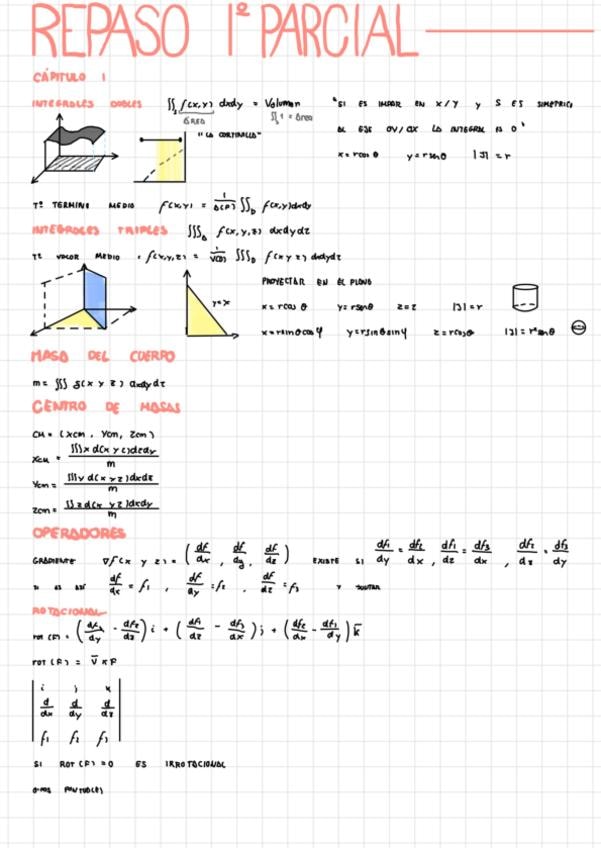 REPASO 1º PARCIAL
CÁPITULO 1
INTEGRALES DOBLES ∬ f(x,y) dxdy = Volumen "SI ES IMPAR EN X/Y Y S ES SIMETRICO
ÁREA ∬ 1 = área
AL EJE OY/OX LA INTEGRAL ES 0"
"LA CORTINILLA"
x = rcos θ y = rsenθ |J| = r
Tº TERMINO MEDIO f(x,y) = 1/A(D) ∬_D f(x,y)dxdy
INTEGRALES TRIPLES ∭ f(x,y,z) dxdydz
Tº VALOR MEDIO : f(x,y,z) = 1/V(D) ∭ f(x y z) dxdydz
PROYECTAR EN EL PLANO
y=x
x = rcos θ y = rsenθ z = z |J| = r
x = rsenθcosφ y = rsenθsenφ z = rcosθ |J| = r²senθ
MASA DEL CUERPO
m = ∭ δ(x y z) dxdydz
CENTRO DE MASAS
CM = (xcm, ycm, zcm)
xcm = ∭x d(x y z)dzdy / m
ycm = ∭y d(x y z)dxdz / m
zcm = ∬z d(x y z)dxdy / m
OPERADORES
GRADIENTE ∇f(x y z) = (df/dx, df/dy, df/dz) EXISTE SI df1/dy = df2/dx, df1/dz = df3/dx, df2/dz = df3/dy
SI ES ASÍ df/dx = f1, df/dy = f2, df/dz = f3 Y
ROTACIONAL
rot (F) = (df3/dy - df2/dz) i + (df1/dz - df3/dx) j + (df2/dx - df1/dy) k
rot (F) = ∇ x F
i j k
d/dx d/dy d/dz
f1 f2 f3
SI ROT (F) = 0 ES IRROTACIONAL